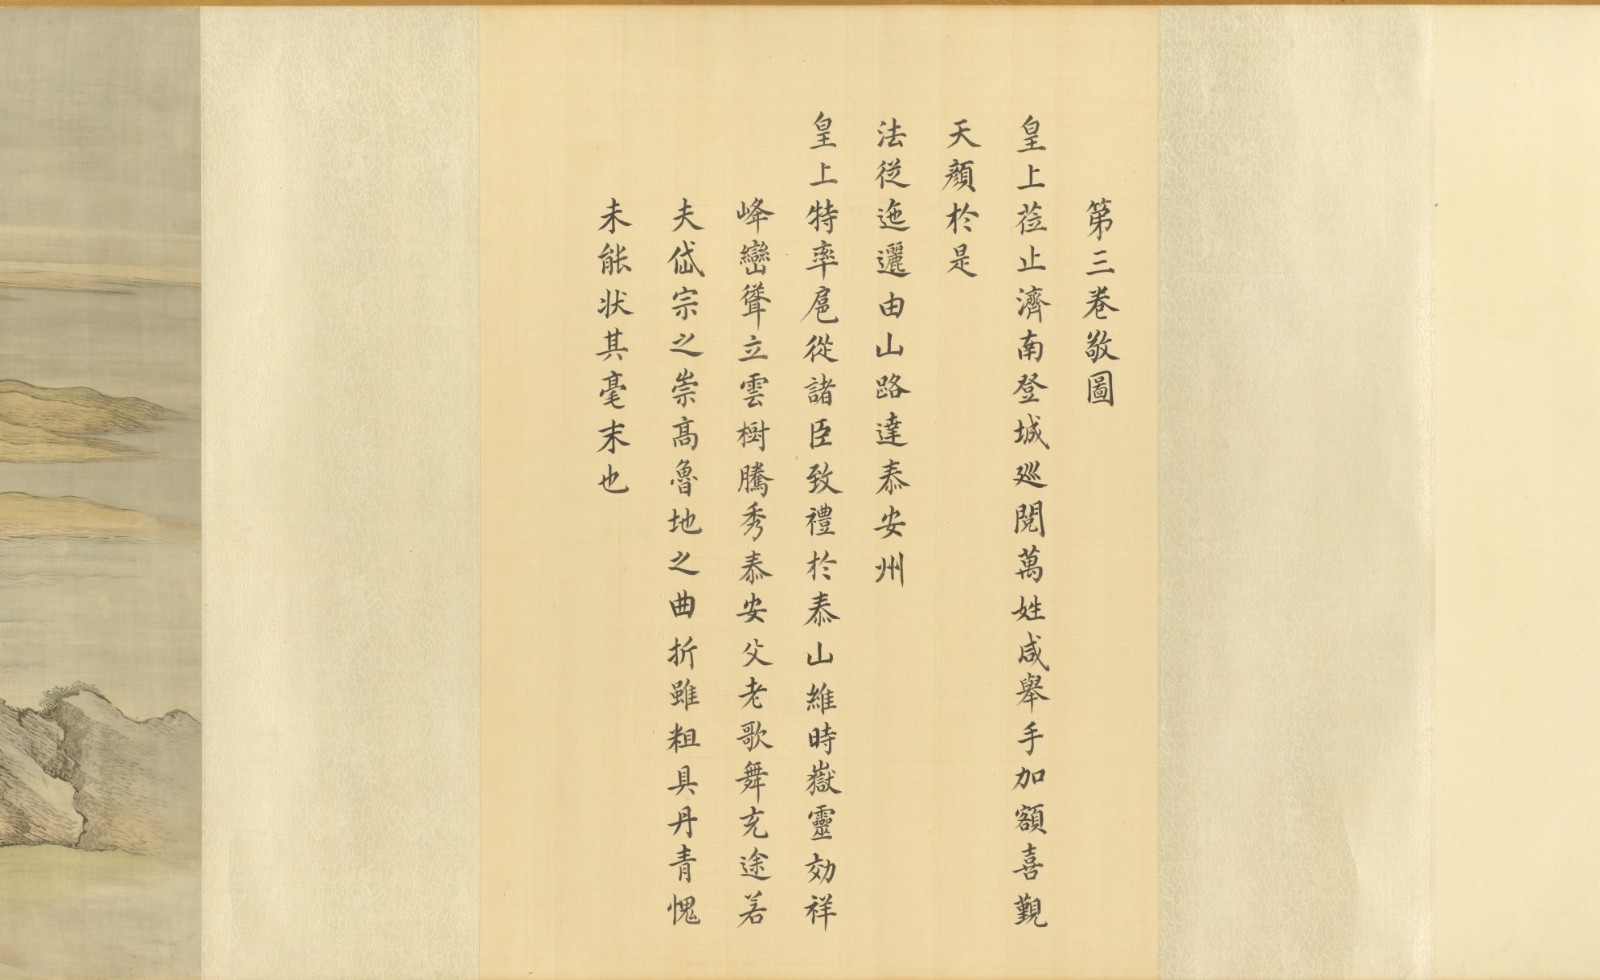 第三卷敬圖
皇上莅止濟南登城巡閱萬姓咸舉手加額喜覲
天顏於是
法從迤邐由山路達泰安州
皇上特率扈從諸臣致禮於泰山維時嶽靈効祥
峰巒聳立雲樹騰秀泰安父老歌舞充途若
夫岱宗之崇高魯地之曲折雖粗具丹青愧
未能状其毫末也